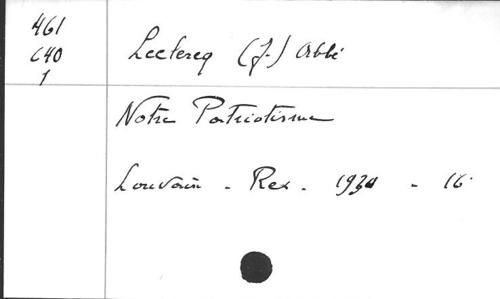 461
C40
1
Leclercq (J.) Abbé
Notre Patriotisme
Louvain - Rex - 193 - 16